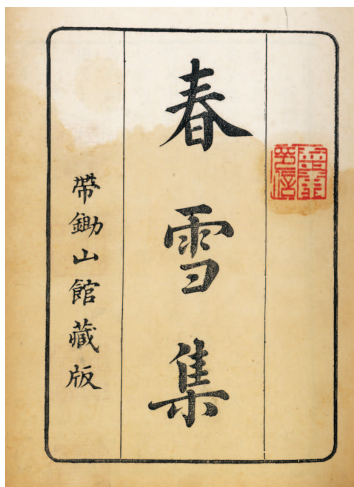 春雪集
帶鋤山館藏版